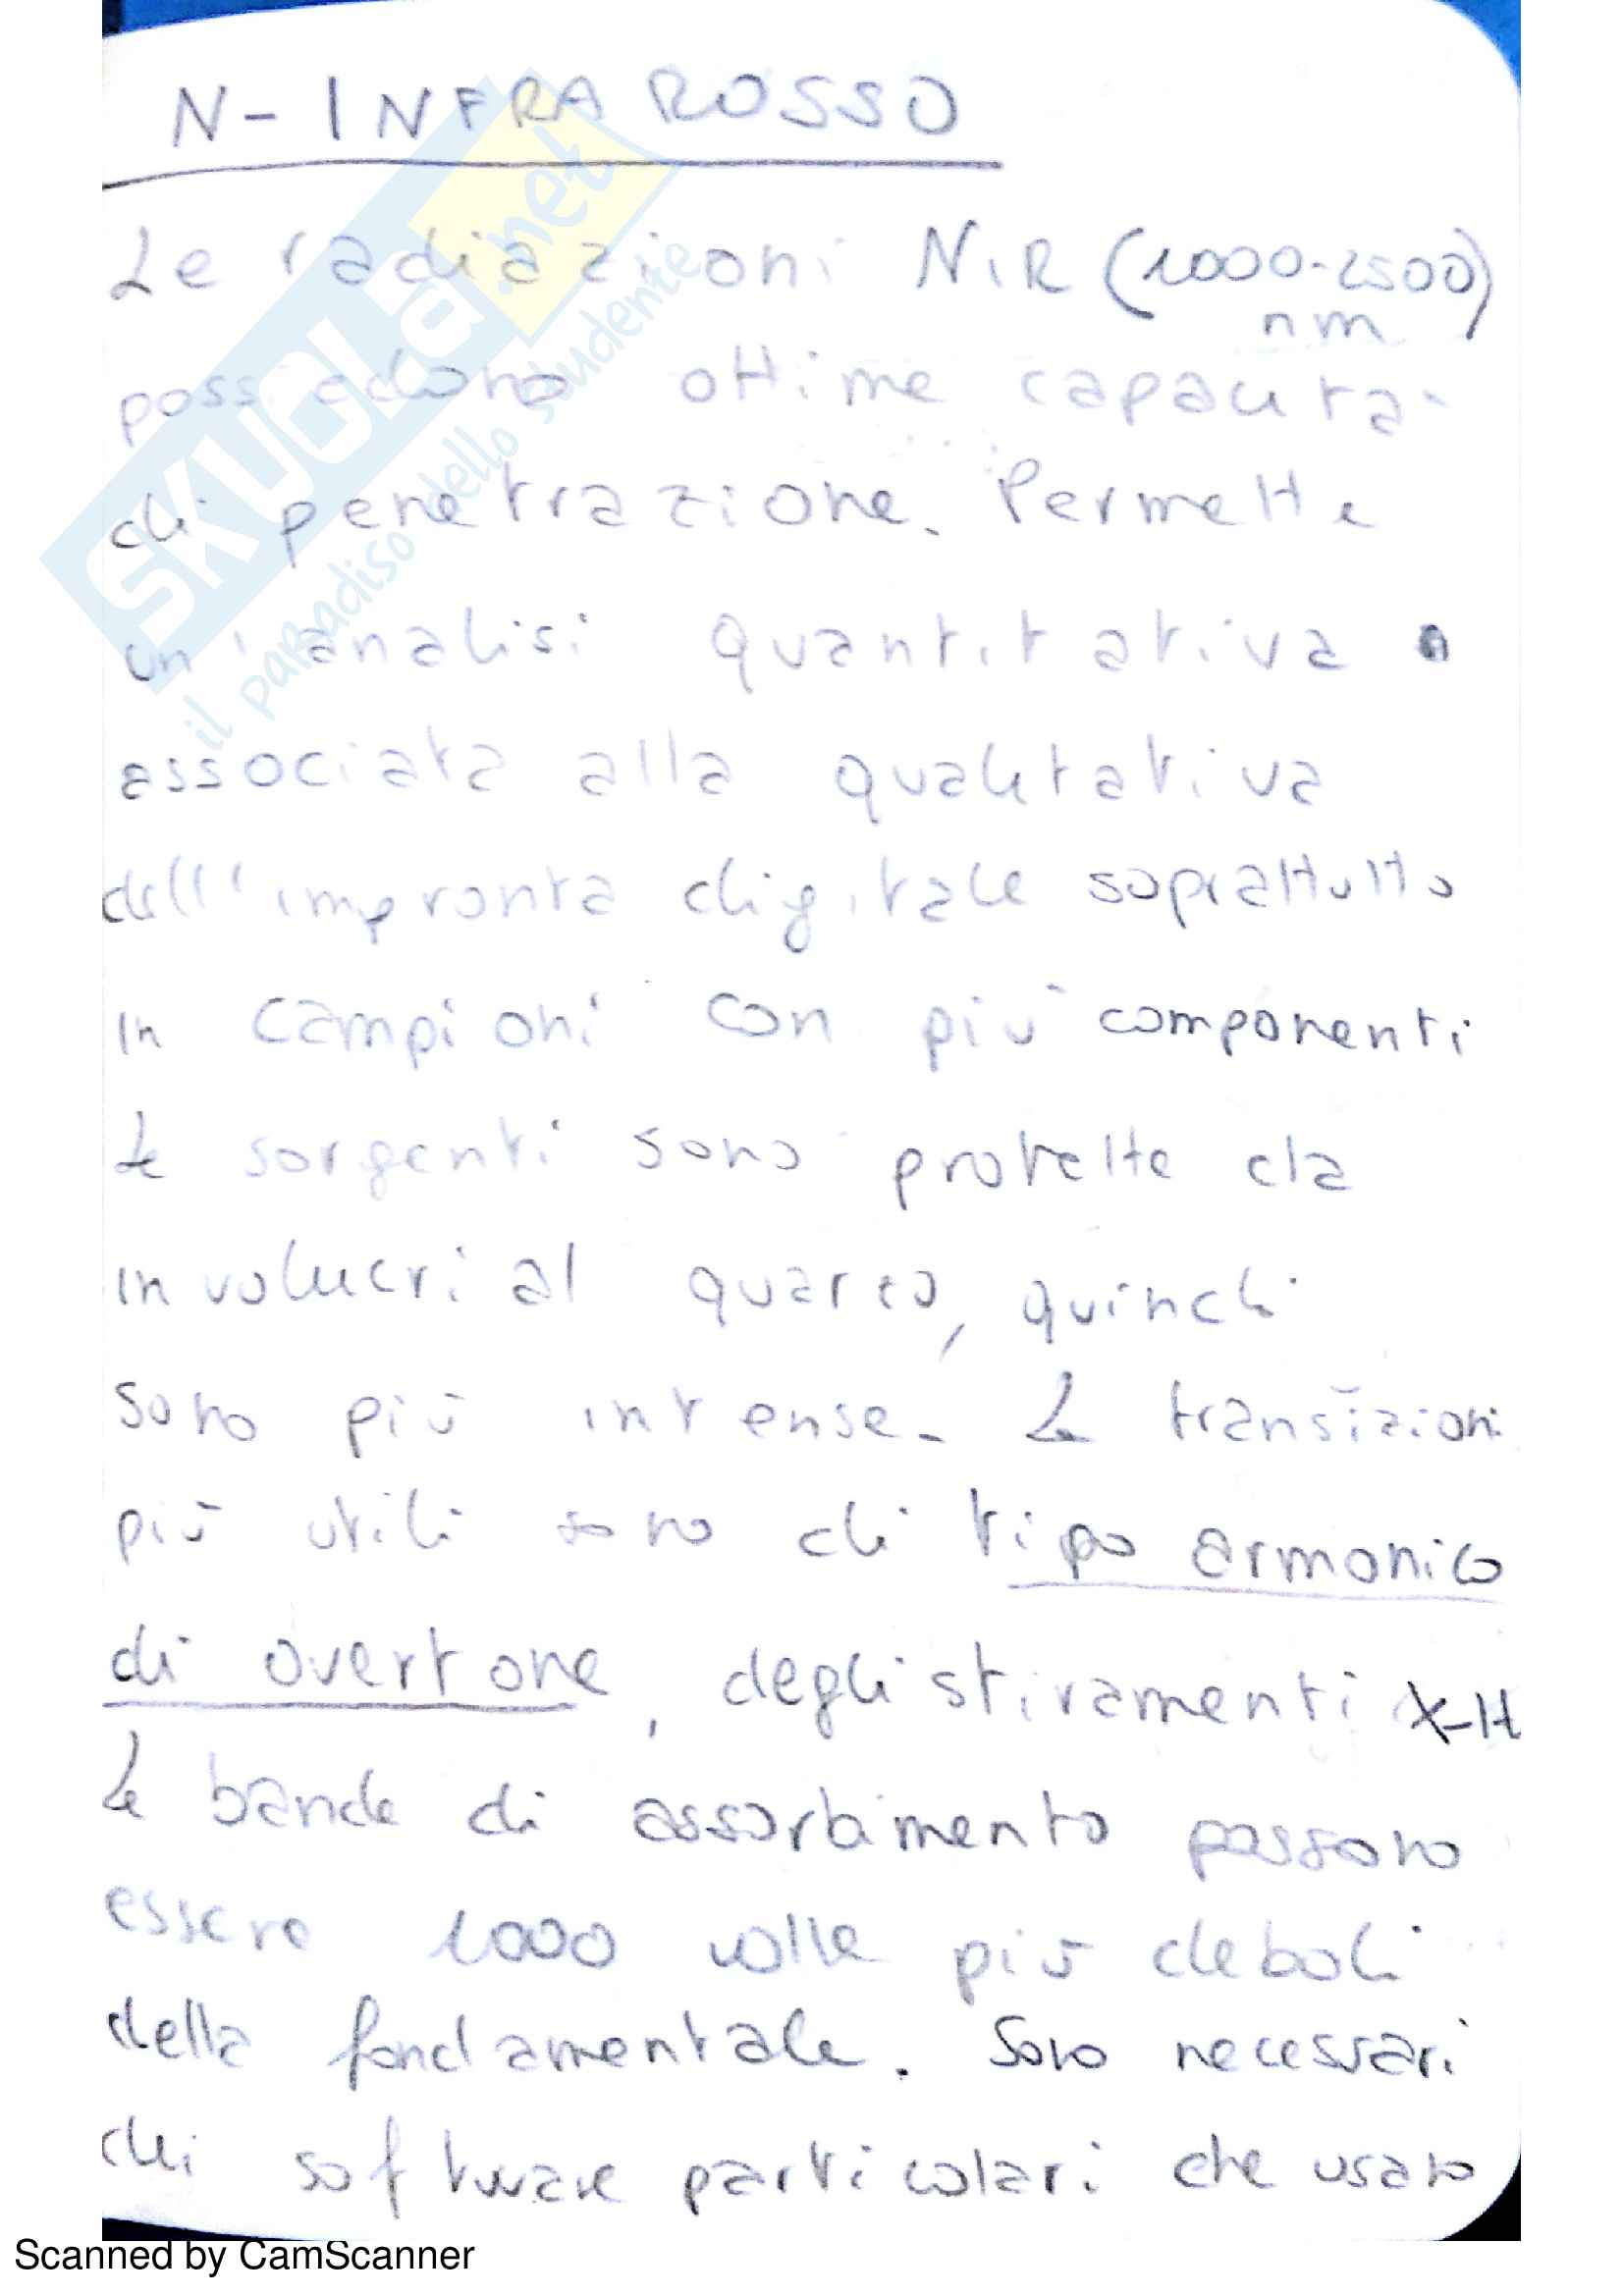 N-INFRAROSSO
Le radiazioni NIR (1000-2500)
nm
possiedono ottime capacità
di penetrazione. Permette
un'analisi quantitativa
associata alla qualitativa
dell'impronta digitale soprattutto
in campioni con più componenti
Le sorgenti sono protette da
involucri al quarzo, quindi
sono più intense. Le transizioni
più utili sono di tipo armonico
di overtone, degli stiramenti X-H
Le bande di assorbimento possono
essere 1000 volte più deboli
della fondamentale. Sono necessari
dei software particolari che usano
SKUOLA.net
il paradiso dello studente
Scanned by CamScanner